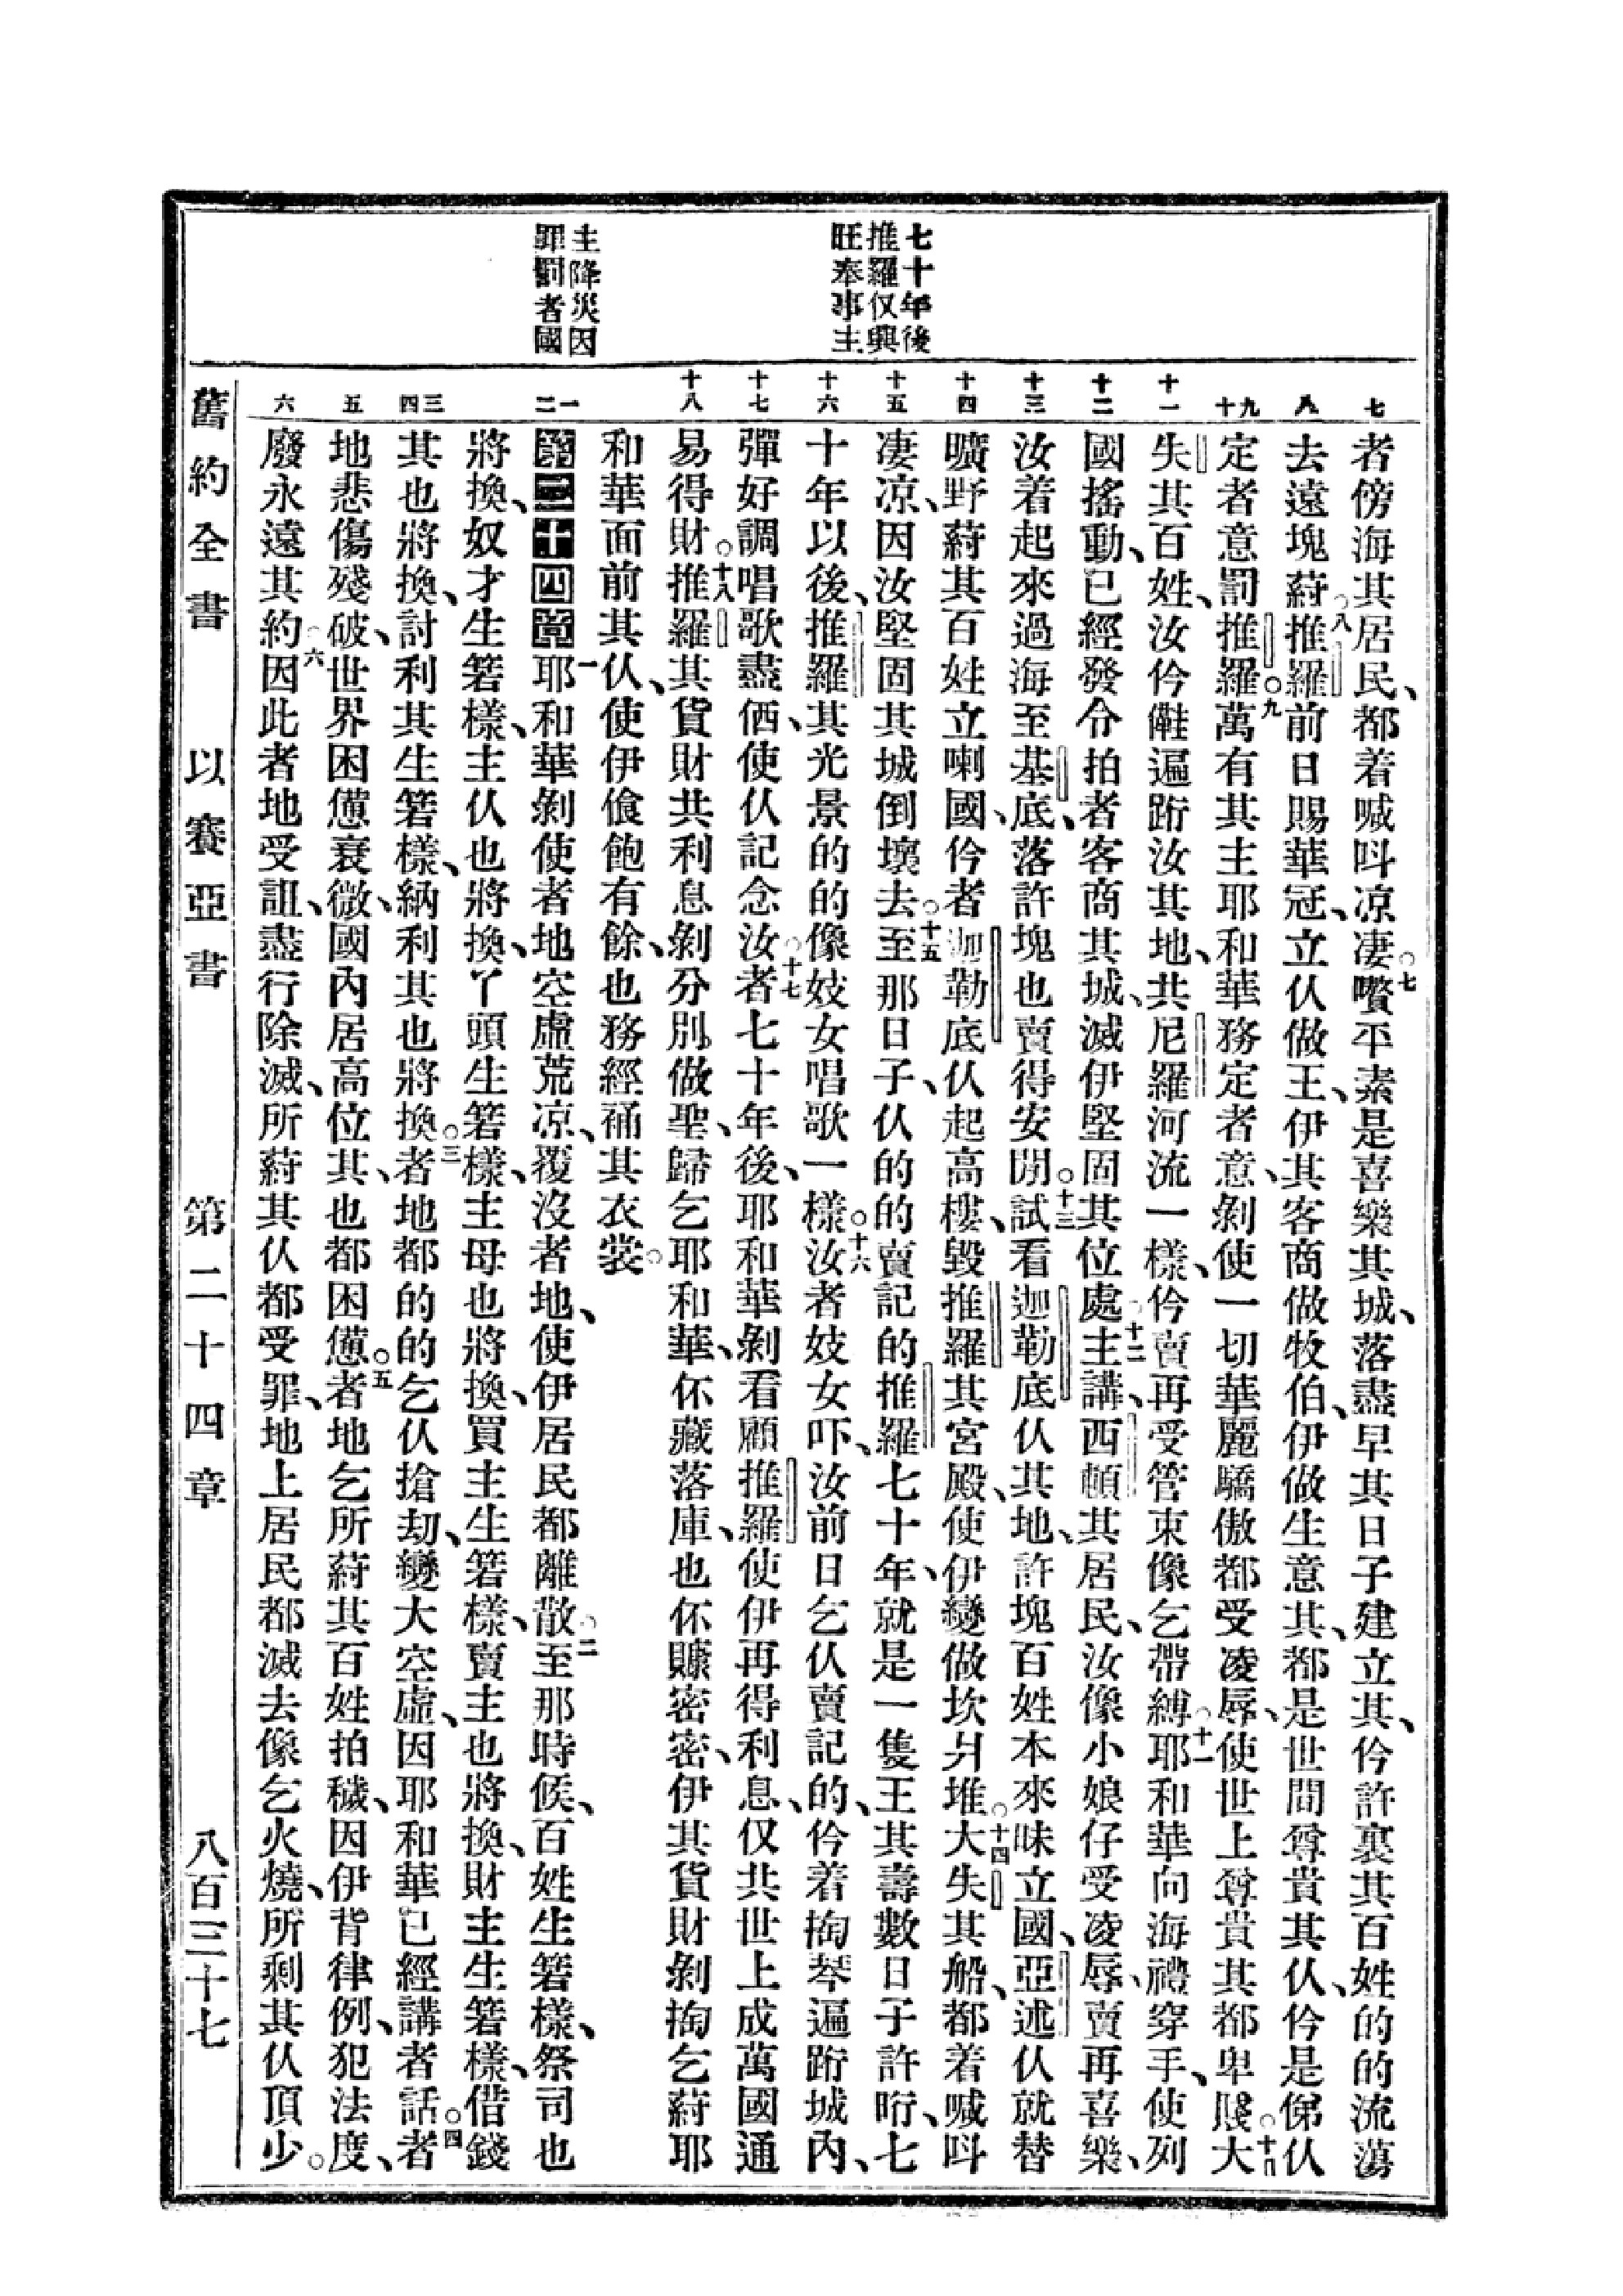 七十年後
推羅仅興
旺奉事主
主降災因
罪罰者國
七
八
九十
十一
十二
十三
十四
十五
十六
十七
十八
一二
三四
五
六
者傍海其居民、都着喊呌凉凄。七嚽平素是喜樂其城、落盡早其日子建立其、仱許裏其百姓的的流蕩
去遠塊蔚。八推羅前日賜華冠、立仈做王、伊其客商做牧伯、伊做生意其、都是世間尊貴其仈、仱是俤仈
定者意罰推羅。九萬有其主耶和華務定者意、剝使一切華麗驕傲都受凌辱、使世上尊貴其都卑賤。十大
失其百姓、汝仱儺遍跨汝其地、共尼羅河流一樣、仱賣再受管束像乞帶縛。十一耶和華向海禮穿手、使列
國搖動、已經發令拍者客商其城、滅伊堅固其位處。十二主講、西頓其居民、汝像小娘仔受凌辱、賣再喜樂、
汝着起來過海至基底、落許塊也賣得安閒。十三試看迦勒底仈其地、許塊百姓本來昧立國、亞述仈就替
曠野蔚其百姓立喇國、仱者迦勒底仈起高樓、毀推羅其宮殿、使伊變做坎爿堆。十四大失其船、都着喊呌
凄凉、因汝堅固其城倒壞去。十五至那日子、仈的的賣記的推羅七十年、就是一隻王其壽數日子許暅、七
十年以後、推羅其光景的的像妓女唱歌一樣。十六汝者妓女吓、汝前日乞仈賣記的、仱着掏琴遍跨城內、
彈好調唱歌盡価、使仈記念汝。十七者七十年後、耶和華剝看顧推羅使伊再得利息、仅共世上成萬國通
易得財。十八推羅其貨財共利息剝分別做聖、歸乞耶和華、伓藏落庫、也伓賺密密、伊其貨財剝掏乞蔚耶
和華面前其仈、使伊飧飽有餘、也務經補其衣裳。
第二十四章一耶和華剝使者地空虛荒凉、覆沒者地、使伊居民都離散。二至那時候、百姓生箬樣、祭司也
將換、奴才生箬樣、主仈也將換、丫頭生箬樣、主母也將換、買主生箬樣、賣主也將換、財主生箬樣、借錢
其也將換、討利其生箬樣、納利其也將換。三者地都的的乞仈搶刼、變大空虛、因耶和華已經講者話。四者
地悲傷殘破、世界困憊衰微、國內居高位其、也都困憊。五者地乞所蔚其百姓拍穢、因伊背律例、犯法度、
廢永遠其約。六因此者地受詛、盡行除滅、所蔚其仈都受罪、地上居民都滅去像乞火燒、所剩其仈頂少。
舊約全書 以賽亞書 第二十四章 八百三十七